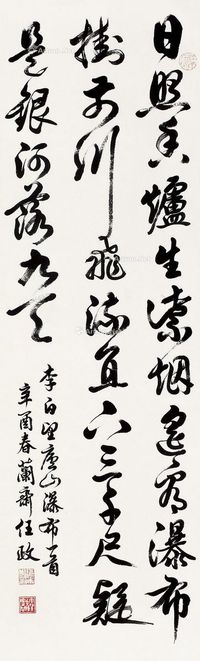 日照香爐生紫烟遥看瀑布
掛前川飛流直下三千尺疑
是銀河落九天
李白望庐山瀑布一首
辛酉春蘭齋任政